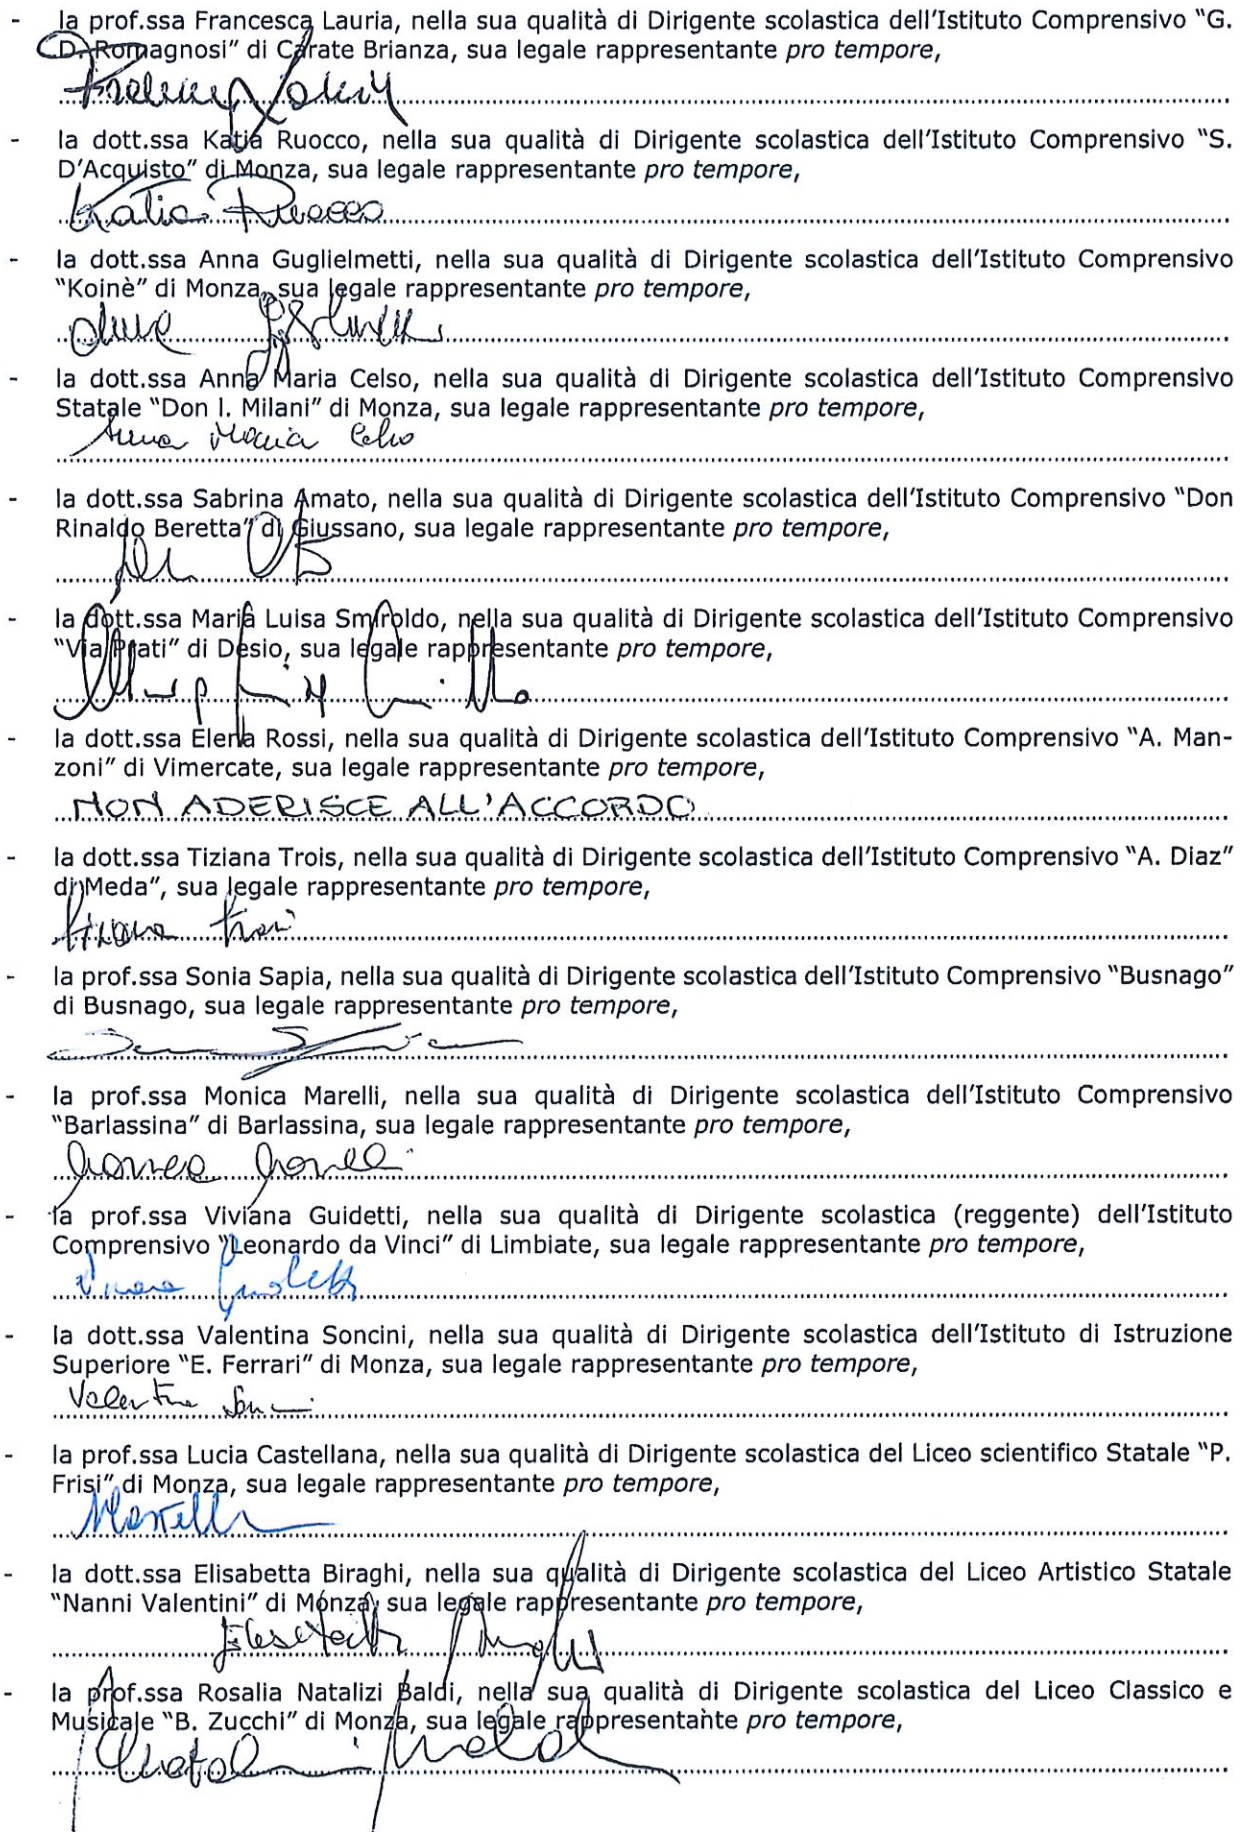 - la prof.ssa Francesca Lauria, nella sua qualità di Dirigente scolastica dell'Istituto Comprensivo "G.
D. Romagnosi" di Carate Brianza, sua legale rappresentante pro tempore,
- la dott.ssa Katia Ruocco, nella sua qualità di Dirigente scolastica dell'Istituto Comprensivo "S.
D'Acquisto" di Monza, sua legale rappresentante pro tempore,
Katia Ruocco
- la dott.ssa Anna Guglielmetti, nella sua qualità di Dirigente scolastica dell'Istituto Comprensivo
"Koinè" di Monza, sua legale rappresentante pro tempore,
- la dott.ssa Anna Maria Celso, nella sua qualità di Dirigente scolastica dell'Istituto Comprensivo
Statale "Don l. Milani" di Monza, sua legale rappresentante pro tempore,
Anna Maria Celso
- la dott.ssa Sabrina Amato, nella sua qualità di Dirigente scolastica dell'Istituto Comprensivo "Don
Rinaldo Beretta" di Giussano, sua legale rappresentante pro tempore,
- la dott.ssa Maria Luisa Smiroldo, nella sua qualità di Dirigente scolastica dell'Istituto Comprensivo
"Via Prati" di Desio, sua legale rappresentante pro tempore,
- la dott.ssa Elena Rossi, nella sua qualità di Dirigente scolastica dell'Istituto Comprensivo "A. Man-
zoni" di Vimercate, sua legale rappresentante pro tempore,
NON ADERISCE ALL'ACCORDO
- la dott.ssa Tiziana Trois, nella sua qualità di Dirigente scolastica dell'Istituto Comprensivo "A. Diaz"
di Meda", sua legale rappresentante pro tempore,
- la prof.ssa Sonia Sapia, nella sua qualità di Dirigente scolastica dell'Istituto Comprensivo "Busnago"
di Busnago, sua legale rappresentante pro tempore,
- la prof.ssa Monica Marelli, nella sua qualità di Dirigente scolastica dell'Istituto Comprensivo
"Barlassina" di Barlassina, sua legale rappresentante pro tempore,
- la prof.ssa Viviana Guidetti, nella sua qualità di Dirigente scolastica (reggente) dell'Istituto
Comprensivo "Leonardo da Vinci" di Limbiate, sua legale rappresentante pro tempore,
- la dott.ssa Valentina Soncini, nella sua qualità di Dirigente scolastica dell'Istituto di Istruzione
Superiore "E. Ferrari" di Monza, sua legale rappresentante pro tempore,
- la prof.ssa Lucia Castellana, nella sua qualità di Dirigente scolastica del Liceo scientifico Statale "P.
Frisi" di Monza, sua legale rappresentante pro tempore,
- la dott.ssa Elisabetta Biraghi, nella sua qualità di Dirigente scolastica del Liceo Artistico Statale
"Nanni Valentini" di Monza, sua legale rappresentante pro tempore,
- la prof.ssa Rosalia Natalizi Baldi, nella sua qualità di Dirigente scolastica del Liceo Classico e
Musicale "B. Zucchi" di Monza, sua legale rappresentante pro tempore,